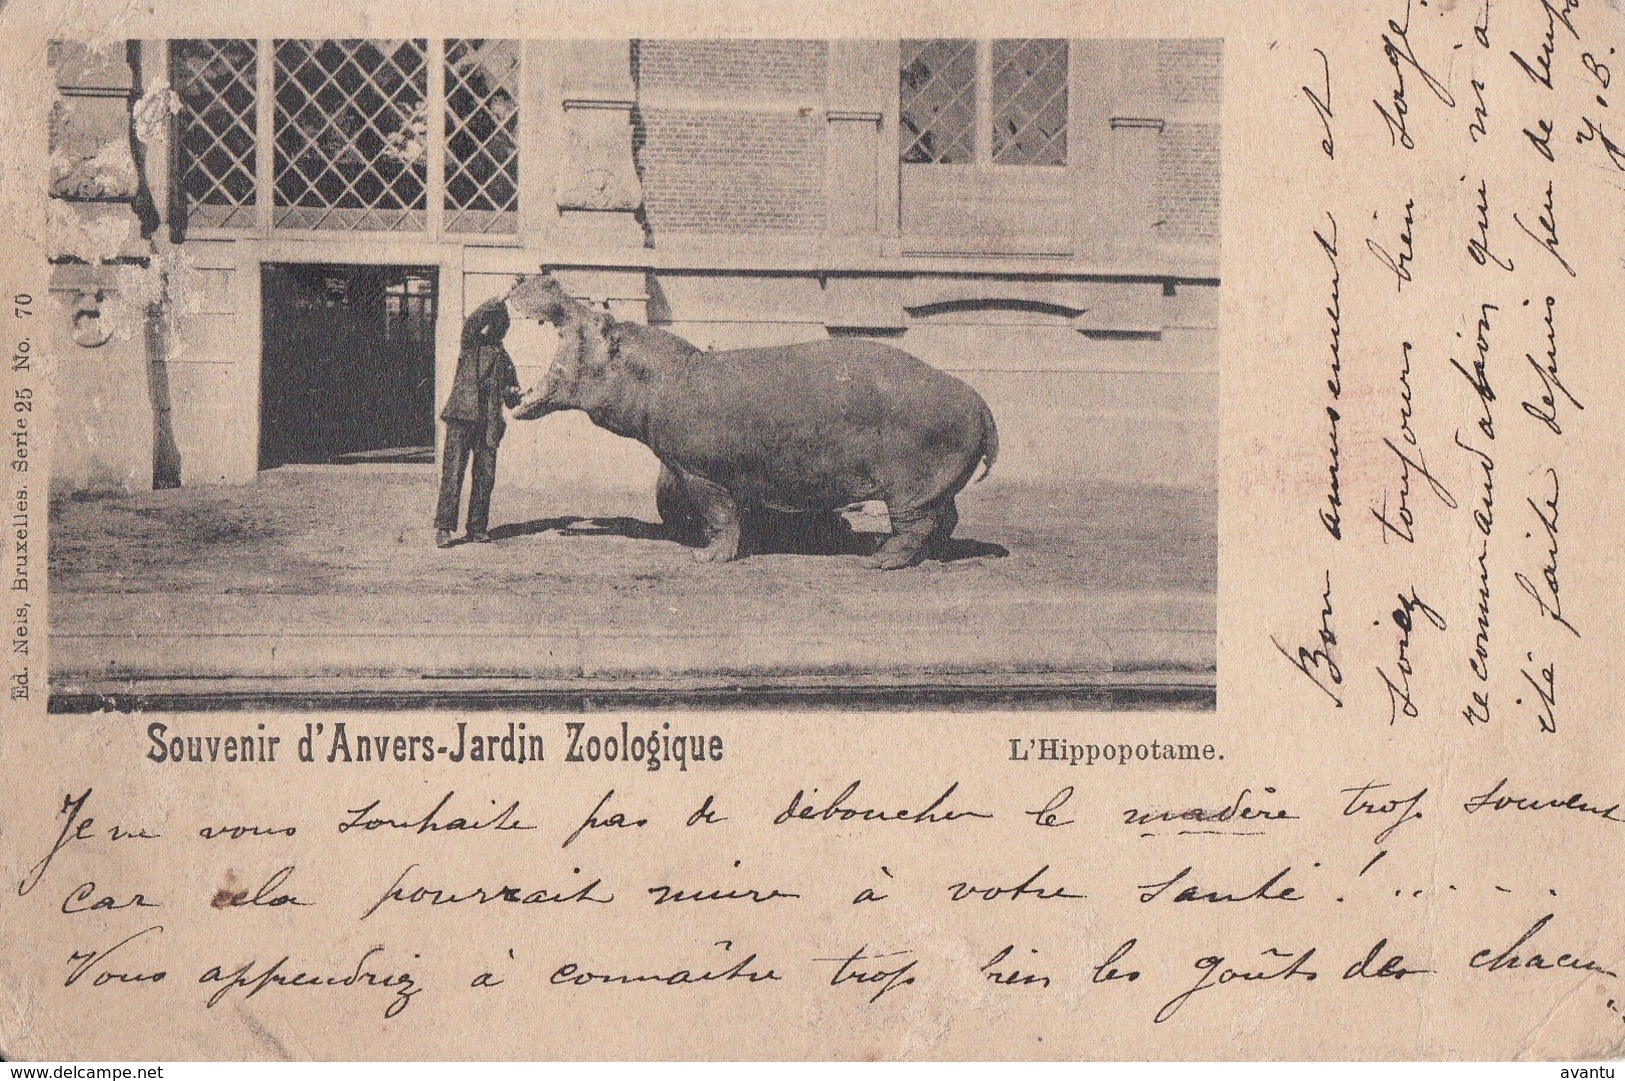 Ed. Nels, Bruxelles. Serie 25 No. 70
Souvenir d'Anvers-Jardin Zoologique
L'Hippopotame.
Je ne vous souhaite pas de déboucher le madère trop souvent
car cela pourrait nuire à votre santé ! .....
Vous apprendriez à connaître trop bien les goûts de chacun
Bon amusement et
soiez toujours bien sage.
recommandation qui m'a
été faite depuis peu de temps
J.B.
delcampe.net
avantu